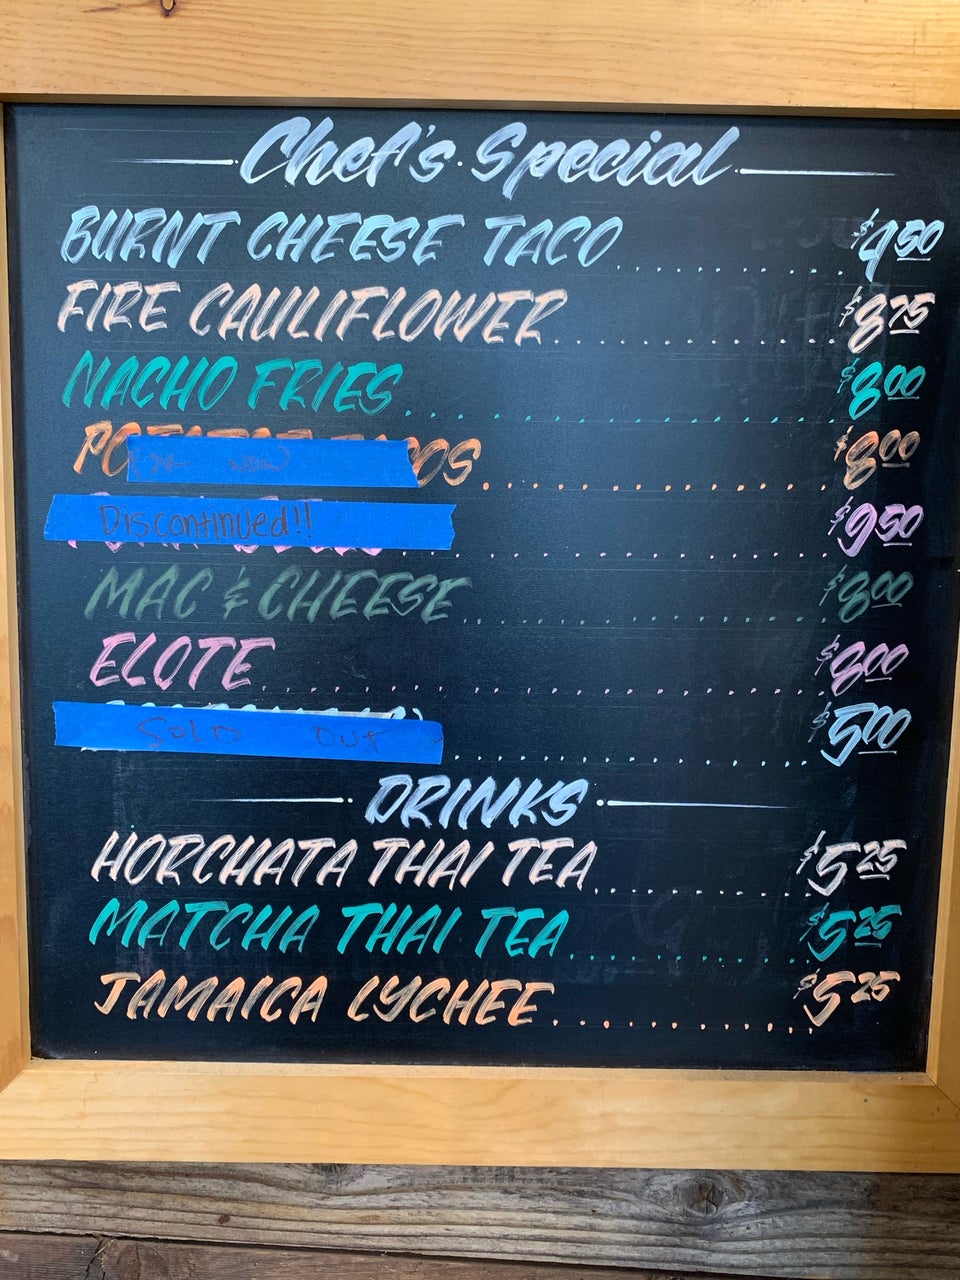 Chef's Special
BURNT CHEESE TACO $4.50
FIRE CAULIFLOWER $8.75
NACHO FRIES $8.00
$8.00
Discontinued!! $9.50
MAC & CHEESE $8.00
ELOTE $8.00
SOLD OUT $5.00
DRINKS
HORCHATA THAI TEA $5.25
MATCHA THAI TEA $5.25
JAMAICA LYCHEE $5.25